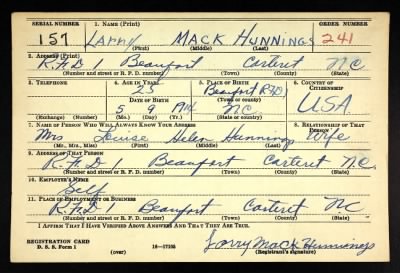 SERIAL NUMBER 1. NAME (Print) ORDER NUMBER
157 LARRY MACK HUNNINGS 241
(First) (Middle) (Last)
2. ADDRESS (Print)
R.F.D 1 Beaufort Carteret N.C.
(Number and street or R. F. D. number) (Town) (County) (State)
3. TELEPHONE 4. AGE IN YEARS 5. PLACE OF BIRTH 6. COUNTRY OF CITIZENSHIP
25 Beaufort R.F.D.1
DATE OF BIRTH (Town or county)
5 9 N.C. USA
(Exchange) (Number) (Mo.) (Day) (Yr.) (State or country)
7. NAME OF PERSON WHO WILL ALWAYS KNOW YOUR ADDRESS 8. RELATIONSHIP OF THAT PERSON
Mrs Louise Helen Hunnings Wife
(Mr., Mrs., Miss) (First) (Middle) (Last)
9. ADDRESS OF THAT PERSON
R.F.D 1 Beaufort Carteret N.C.
(Number and street or R. F. D. number) (Town) (County) (State)
10. EMPLOYER'S NAME
Self
11. PLACE OF EMPLOYMENT OR BUSINESS
R.F.D 1 Beaufort Carteret NC
(Number and street or R. F. D. number) (Town) (County) (State)
I AFFIRM THAT I HAVE VERIFIED ABOVE ANSWERS AND THAT THEY ARE TRUE.
REGISTRATION CARD
D. S. S. Form 1 16—17105 Larry Mack Hunnings
(over) (Registrant's signature)